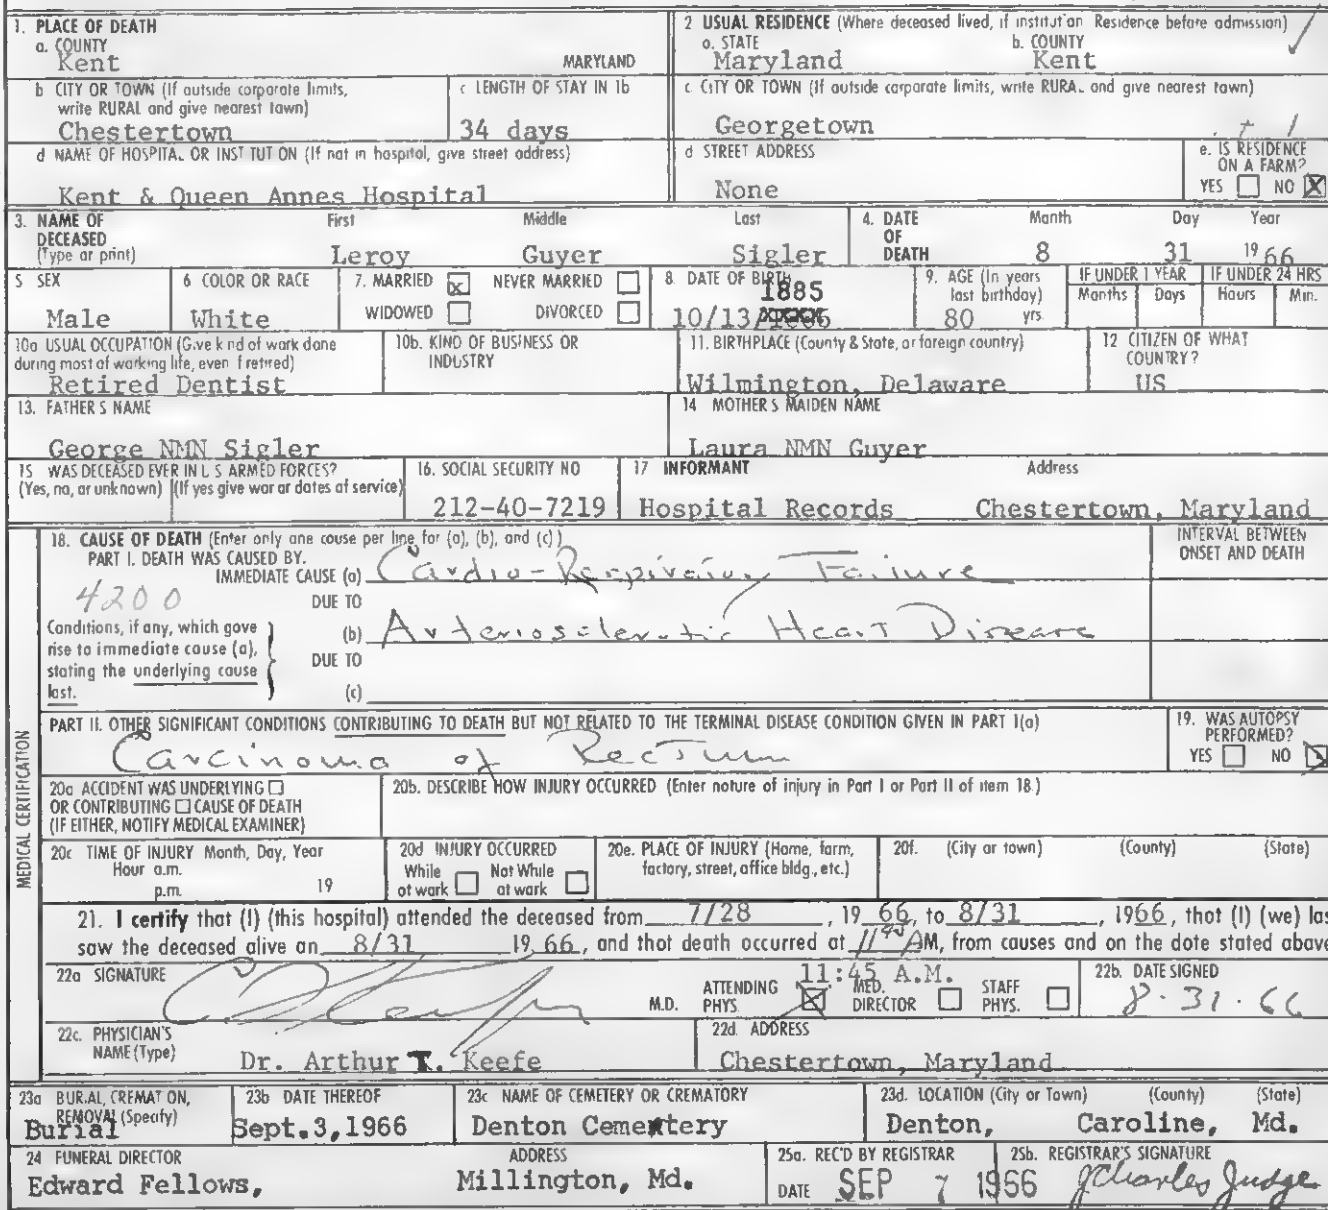 1. PLACE OF DEATH
a. COUNTY
Kent
MARYLAND
2 USUAL RESIDENCE (Where deceased lived, if institut on Residence before admission)
a. STATE
Maryland
b. COUNTY
Kent
b CITY OR TOWN (If outside corporate limits,
write RURAL and give nearest town)
Chestertown
c LENGTH OF STAY IN 1b
34 days
c. CITY OR TOWN (If outside corporate limits, write RURAL and give nearest town)
Georgetown
d NAME OF HOSPITAL OR INST TUT ON (If not in hospital, give street address)
Kent & Queen Annes Hospital
d STREET ADDRESS
None
e. IS RESIDENCE
ON A FARM?
YES NO X
3. NAME OF
DECEASED
(Type or print)
First Middle Last
Leroy Guyer Sigler
4. DATE
OF
DEATH
Month Day Year
8 31 1966
5 SEX
Male
6 COLOR OR RACE
White
7. MARRIED X NEVER MARRIED
WIDOWED DIVORCED
8. DATE OF BIRTH
1885
10/13/
9. AGE (In years
last birthday)
80 yrs
IF UNDER 1 YEAR
Months Days
IF UNDER 24 HRS
Hours Min.
10a USUAL OCCUPATION (Give k nd of work done
during most of working life, even f retired)
Retired Dentist
10b. KIND OF BUSINESS OR
INDUSTRY
11. BIRTHPLACE (County & State, or foreign country)
Wilmington, Delaware
12 CITIZEN OF WHAT
COUNTRY?
US
13. FATHER S NAME
George NMN Sigler
14 MOTHER S MAIDEN NAME
Laura NMN Guyer
15 WAS DECEASED EVER IN U S ARMED FORCES?
(Yes, no, or unknown) (If yes give war or dates of service)
16. SOCIAL SECURITY NO
212-40-7219
17 INFORMANT Address
Hospital Records Chestertown, Maryland
18. CAUSE OF DEATH (Enter only one cause per line for (a), (b), and (c))
INTERVAL BETWEEN
ONSET AND DEATH
PART I. DEATH WAS CAUSED BY.
IMMEDIATE CAUSE (a) Cardio-Respiratory Failure
4200
DUE TO
Conditions, if any, which gave
rise to immediate cause (a),
stating the underlying cause
last.
(b) Arteriosclerotic Heart Disease
DUE TO
(c)
PART II. OTHER SIGNIFICANT CONDITIONS CONTRIBUTING TO DEATH BUT NOT RELATED TO THE TERMINAL DISEASE CONDITION GIVEN IN PART I(a)
Carcinoma of Rectum
19. WAS AUTOPSY
PERFORMED?
YES NO
MEDICAL CERTIFICATION
20a ACCIDENT WAS UNDERLYING
OR CONTRIBUTING CAUSE OF DEATH
(IF EITHER, NOTIFY MEDICAL EXAMINER)
20b. DESCRIBE HOW INJURY OCCURRED (Enter nature of injury in Part I or Part II of item 18.)
20c TIME OF INJURY Month, Day, Year
Hour a.m.
p.m. 19
20d INJURY OCCURRED
While Not While
at work at work
20e. PLACE OF INJURY (Home, farm,
factory, street, office bldg., etc.)
20f. (City or town) (County) (State)
21. I certify that (I) (this hospital) attended the deceased from 7/28, 19 66, to 8/31, 1966, that (I) (we) las
saw the deceased alive on 8/31 19 66, and that death occurred at AM, from causes and on the date stated above
11:45 A.M.
22a SIGNATURE
M.D.
ATTENDING
PHYS. X
MED.
DIRECTOR
STAFF
PHYS.
22b. DATE SIGNED
8-31-66
22c. PHYSICIAN'S
NAME (Type)
Dr. Arthur T. Keefe
22d. ADDRESS
Chestertown, Maryland
23a BURIAL, CREMAT ON,
REMOVAL (Specify)
Burial
23b DATE THEREOF
Sept.3,1966
23c NAME OF CEMETERY OR CREMATORY
Denton Cemextery
23d. LOCATION (City or Town) (County) (State)
Denton, Caroline, Md.
24 FUNERAL DIRECTOR ADDRESS
Edward Fellows, Millington, Md.
25a. REC'D BY REGISTRAR
DATE SEP 7 1966
25b. REGISTRAR'S SIGNATURE
J Charles Judge